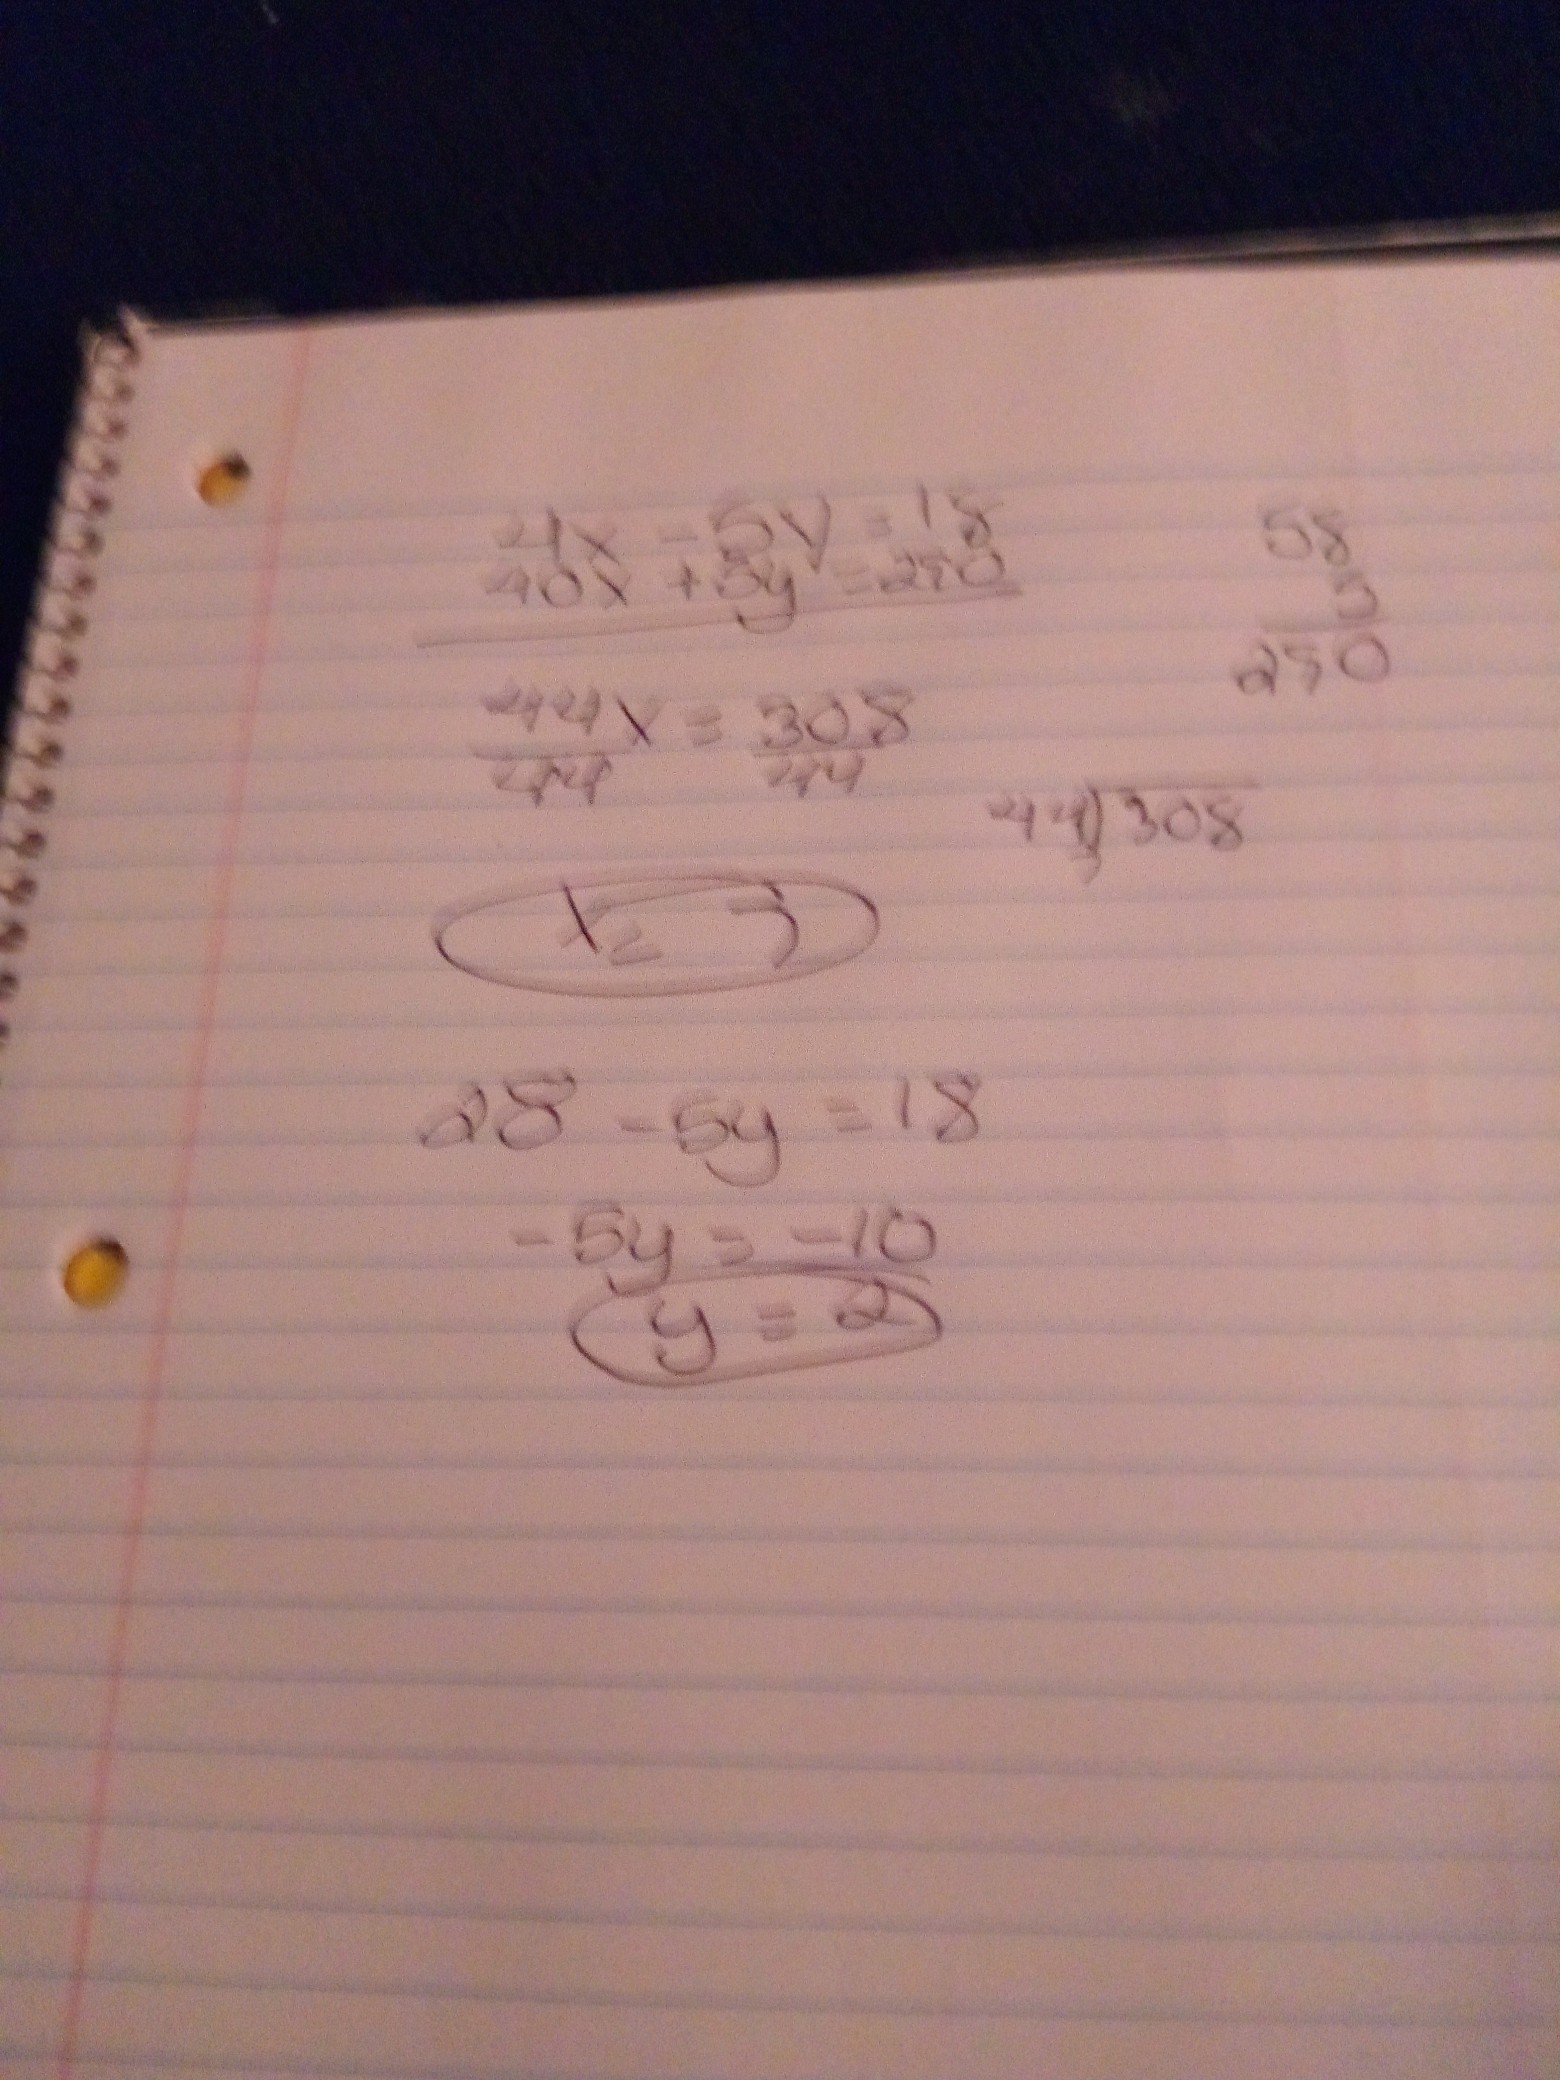 4x - 5y = 18
40x + 5y = 290
44x = 308
44 44
x = 7
28 - 5y = 18
-5y = -10
y = 2
58
5
290
44)308